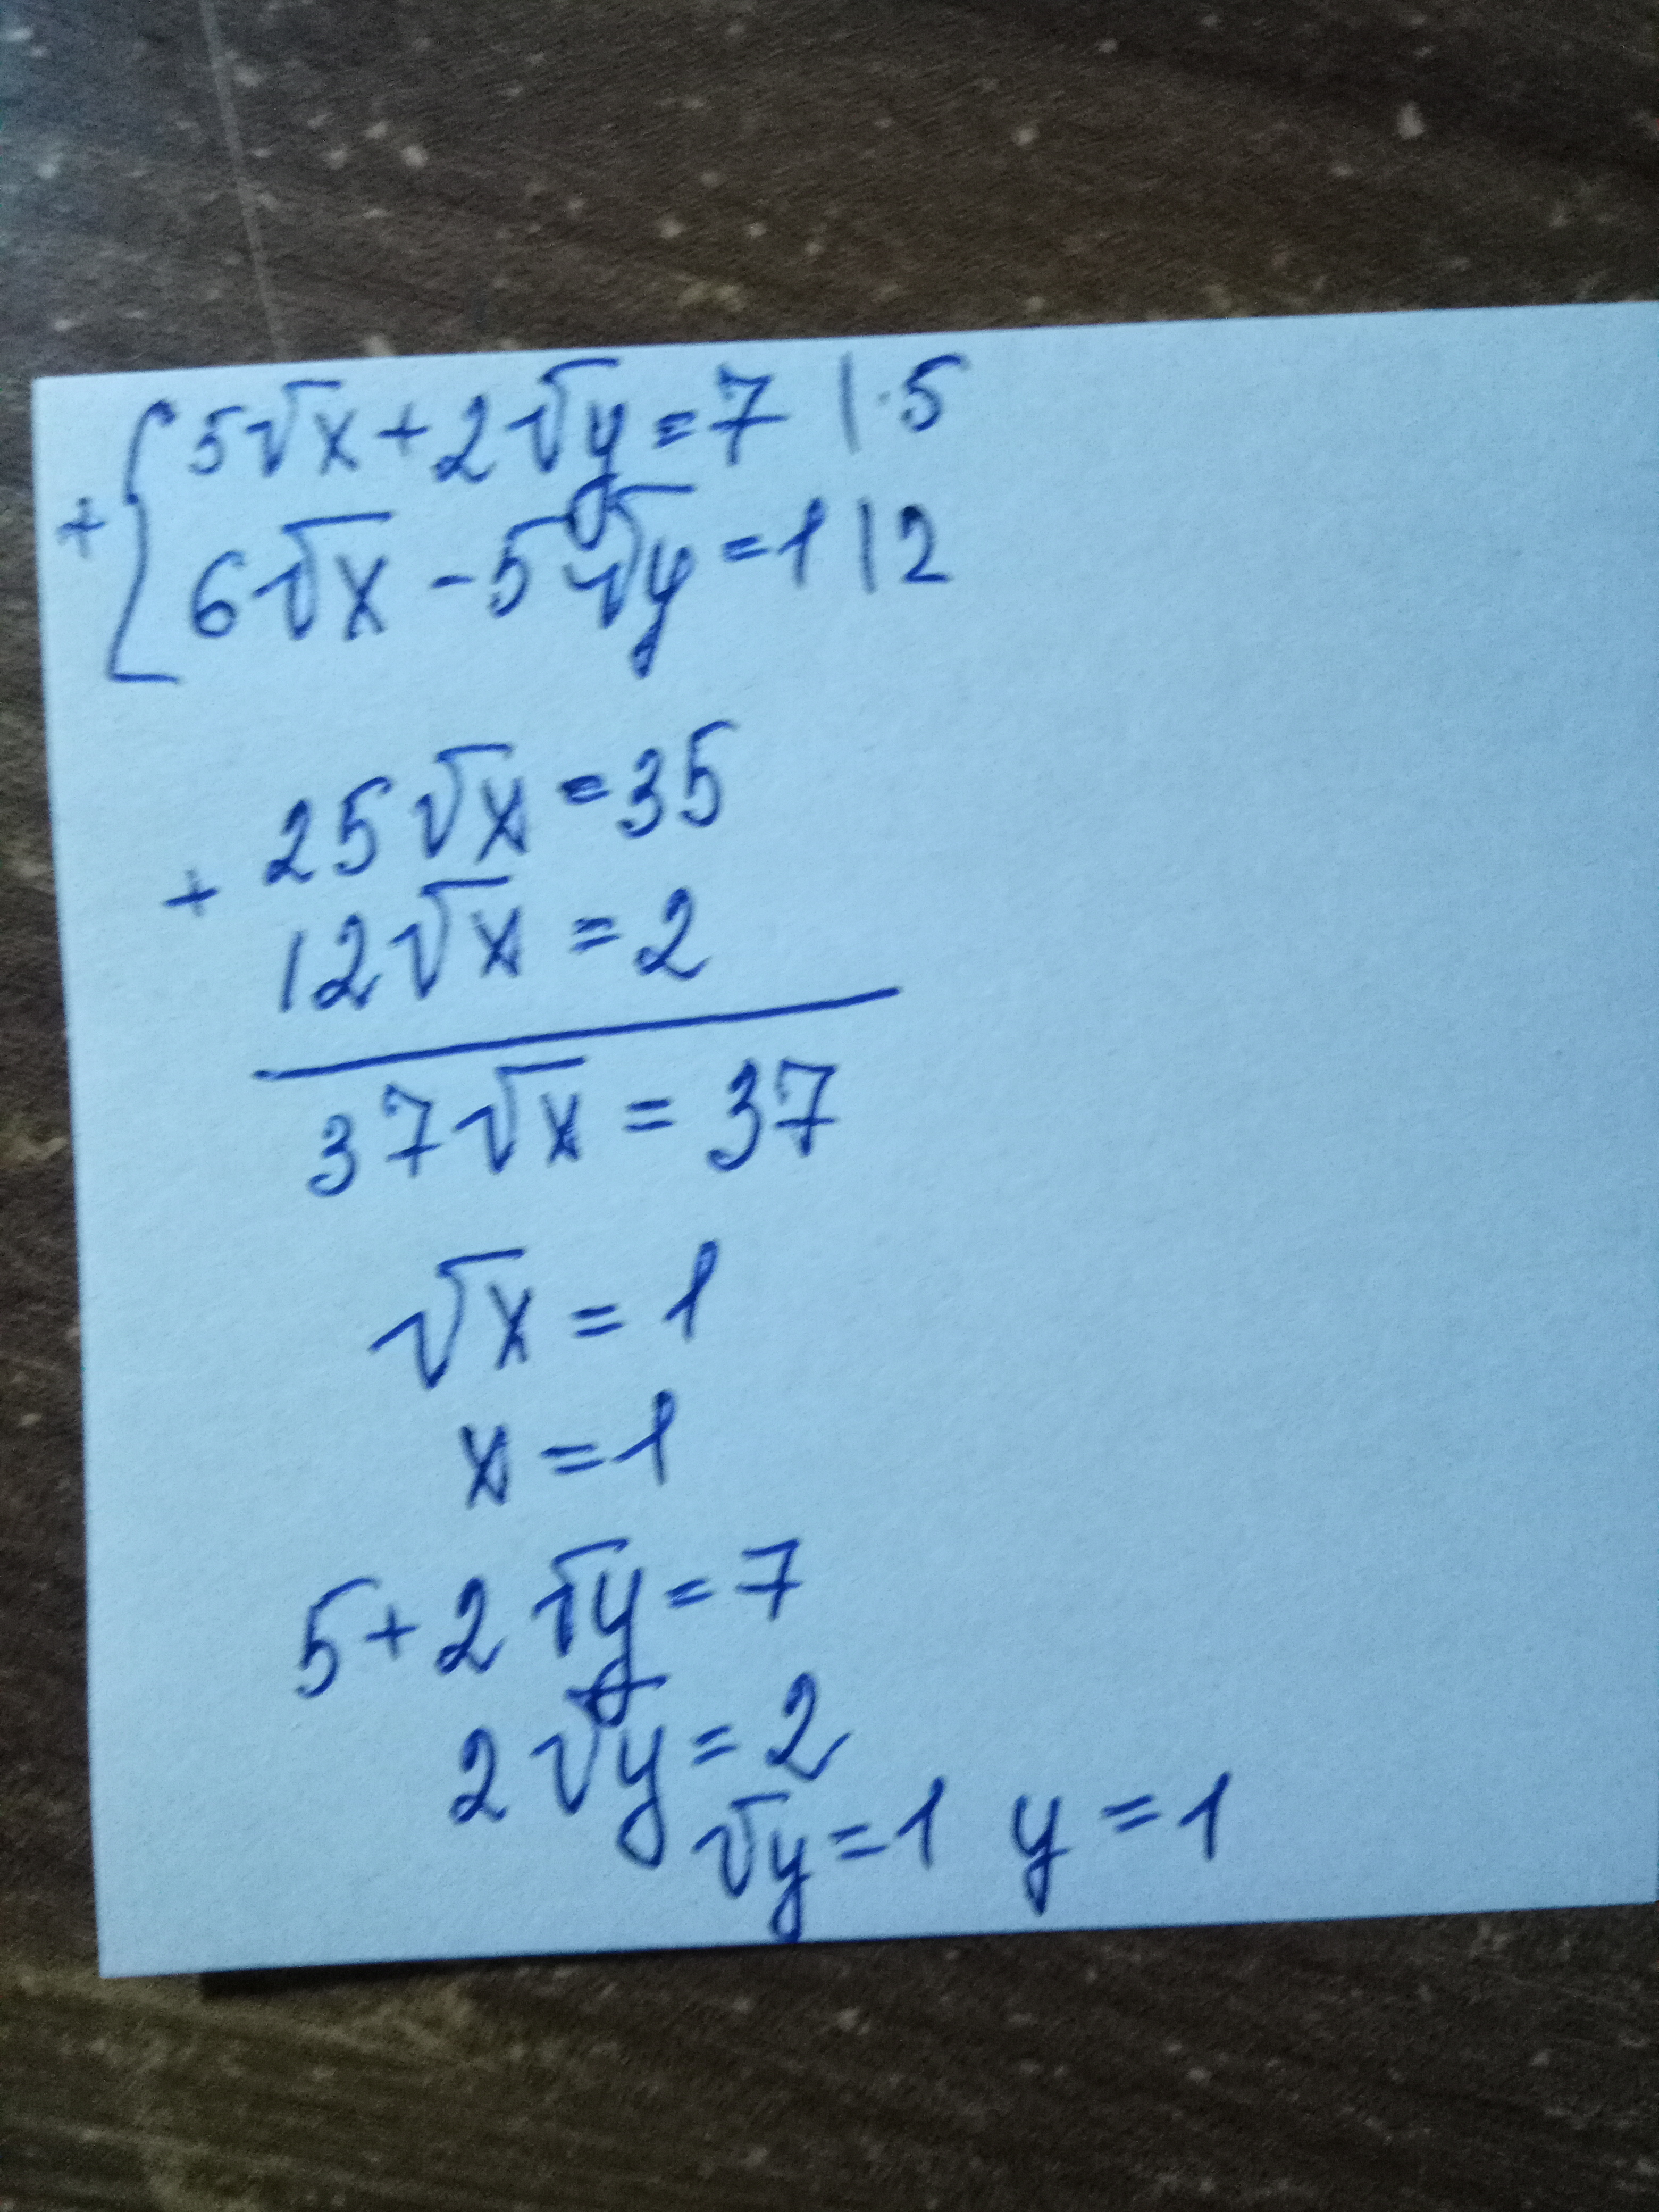 + { 5√x + 2√y = 7 | · 5
6√x - 5√y = 1 | 2
25√x = 35
+
12√x = 2
37√x = 37
√x = 1
x = 1
5 + 2√y = 7
2√y = 2
√y = 1 y = 1